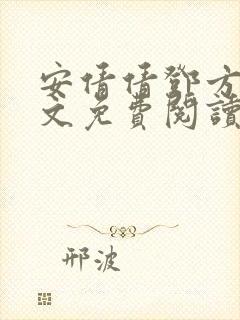 安倩倩鄧方
文免費閱讀
邢波